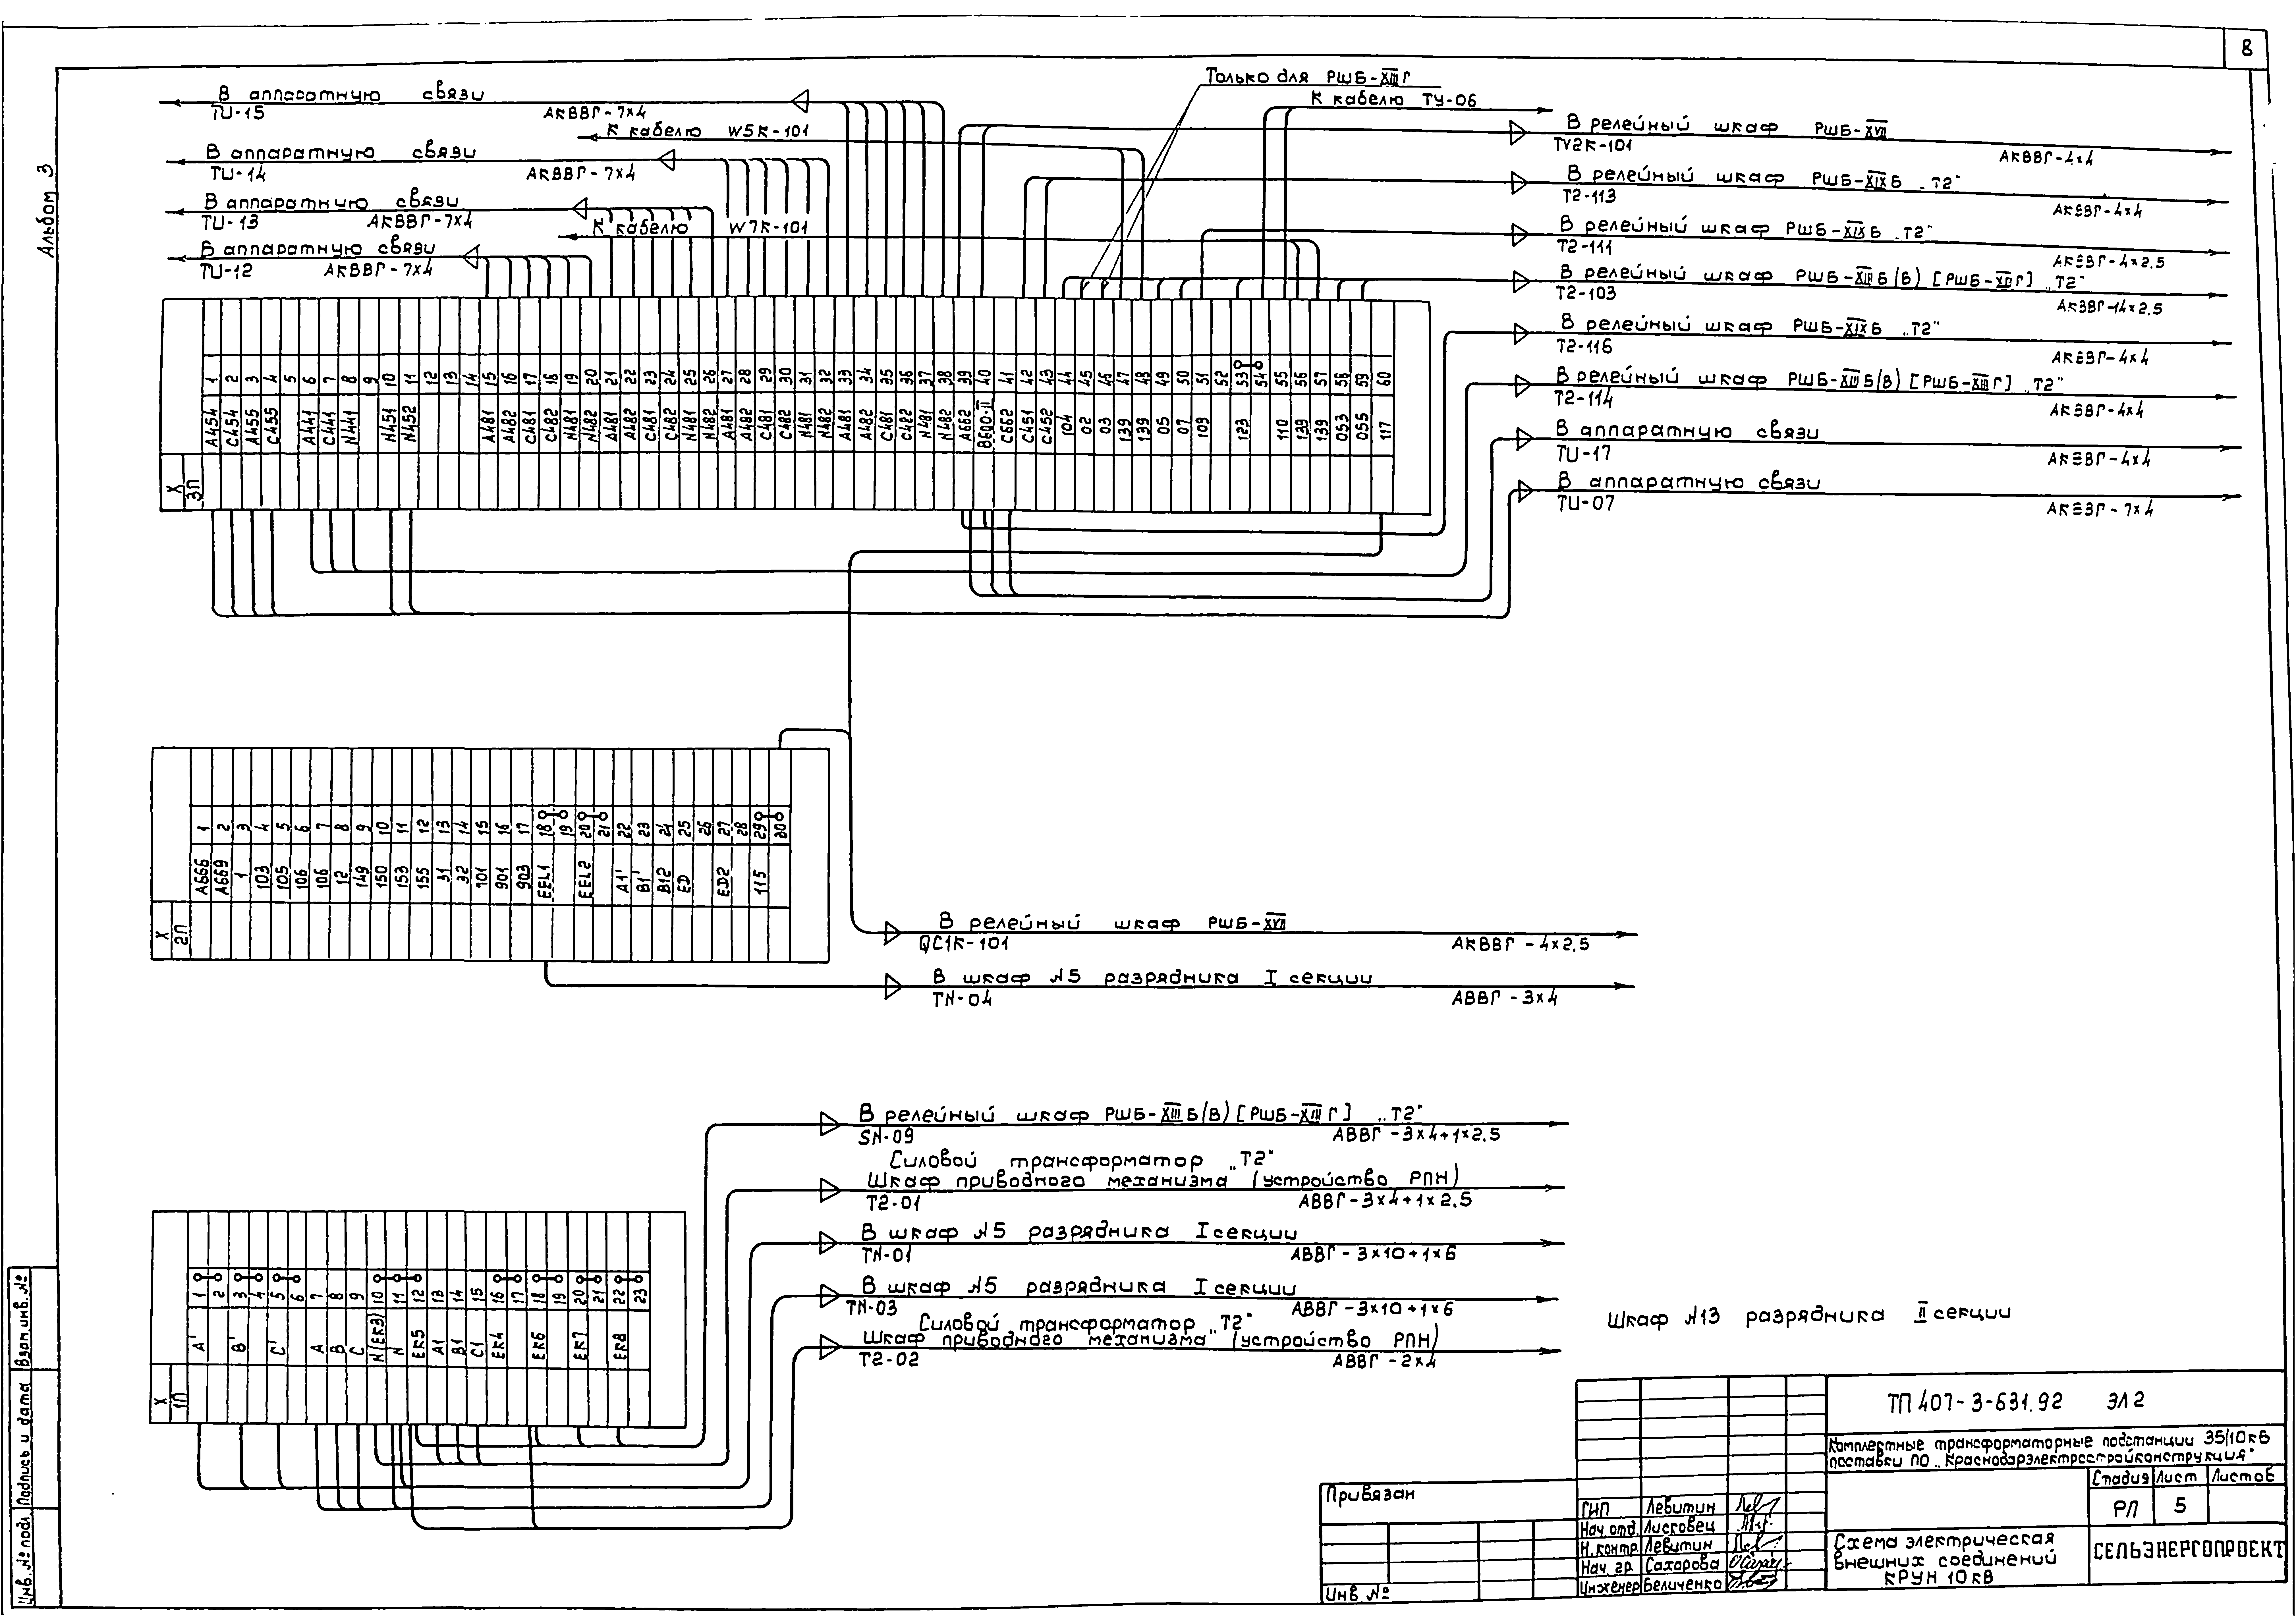 8
Альбом 3
В аппаратную связи
TU-15 АКВВГ-7х4
К кабелю W5K-101
В аппаратную связи
TU-14 АКВВГ-7х4
В аппаратную связи
TU-13 АКВВГ-7х4
К кабелю W7K-101
В аппаратную связи
TU-12 АКВВГ-7х4
Только для РШБ-XIII Г
К кабелю ТУ-06
В релейный шкаф РШБ-XVII
TV2K-101 АКВВГ-4х4
В релейный шкаф РШБ-XIX Б „Т2"
Т2-113 АКВВГ-4х4
В релейный шкаф РШБ-XIX Б „Т2"
Т2-111 АКВВГ-4х2.5
В релейный шкаф РШБ-XIII Б(В) [РШБ-XIII Г] „Т2"
Т2-103 АКВВГ-14х2.5
В релейный шкаф РШБ-XIX Б „Т2"
Т2-116 АКВВГ-4х4
В релейный шкаф РШБ-XIII Б(В) [РШБ-XIII Г] „Т2"
Т2-114 АКВВГ-4х4
В аппаратную связи
TU-17 АКВВГ-4х4
В аппаратную связи
TU-07 АКВВГ-7х4
1 2 3 4 5 6 7 8 9 10 11 12 13 14 15 16 17 18 19 20 21 22 23 24 25 26 27 28 29 30 31 32 33 34 35 36 37 38 39 40 41 42 43 44 45 46 47 48 49 50 51 52 53 54 55 56 57 58 59 60
А454 С454 А455 С455 А441 С441 N441 N451 N452 А481 А482 С481 С482 N481 N482 А481 А482 С481 С482 N481 N482 А481 А482 С481 С482 N481 N482 А481 А482 С481 С482 N481 N482 А662 В600-II С662 С451 С452 104 02 03 139 139 05 07 109 123 110 139 139 053 055 117
Х
3П
1 2 3 4 5 6 7 8 9 10 11 12 13 14 15 16 17 18 19 20 21 22 23 24 25 26 27 28 29 30
А666 А669 1 103 105 106 106 12 149 150 153 155 31 32 901 903 EEL1 EEL2 А1' В1' В12 ED ED2 115
Х
2П
В релейный шкаф РШБ-XVII
QC1K-101 АКВВГ-4х2.5
В шкаф N5 разрядника I секции
TN-04 АВВГ-3х4
В релейный шкаф РШБ-XIII Б(В) [РШБ-XIII Г] „Т2"
SN-09 АВВГ-3х4+1х2.5
Силовой трансформатор „Т2"
Шкаф приводного механизма" (устройство РПН)
Т2-01 АВВГ-3х4+1х2.5
В шкаф N5 разрядника I секции
TN-01 АВВГ-3х10+1х6
В шкаф N5 разрядника I секции
TN-03 АВВГ-3х10+1х6
Силовой трансформатор „Т2"
Шкаф приводного механизма" (устройство РПН)
Т2-02 АВВГ-2х4
1 2 3 4 5 6 7 8 9 10 11 12 13 14 15 16 17 18 19 20 21 22 23
А' В' С' А В С N(ЕК3) N ЕК5 А1 В1 С1 ЕК4 ЕК6 ЕК7 ЕК8
Х
1П
Шкаф N13 разрядника II секции
ТП 407-3-631.92 ЭЛ2
Комплектные трансформаторные подстанции 35/10кВ
поставки ПО „Краснодарэлектростройконструкция"
Стадия Лист Листов
РП 5
Схема электрическая
внешних соединений
КРУН 10 кВ
СЕЛЬЭНЕРГОПРОЕКТ
ГИП Левитин
Нач. отд. Лисковец
Н.контр. Левитин
Нач. гр. Сахарова
Инженер Беличенко
Привязан
Инв. №
Взам. инв. №
Подпись и дата
Инв. № подл.